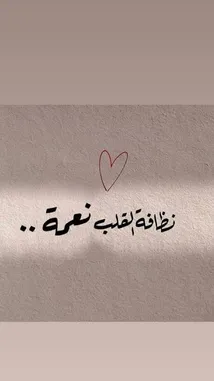 نظافة القلب نعمة ..